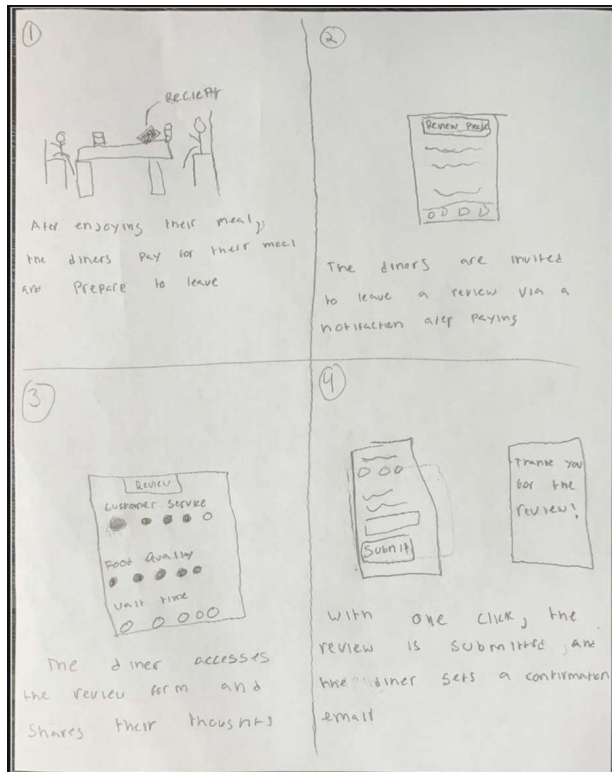 1
RECIEPT
Ater enjoying their meal,
the diners pay for their meal
and prepare to leave
2
Review
The diners are invited
to leave a review via a
after paying
3
Review
Customer Service
Food Quality
Wait time
The diner accesses
the review form and
shares their thoughts
4
Submit
Thank you
for the
review!
with one click, the
review is submitted, and
the diner gets a confirmation
email